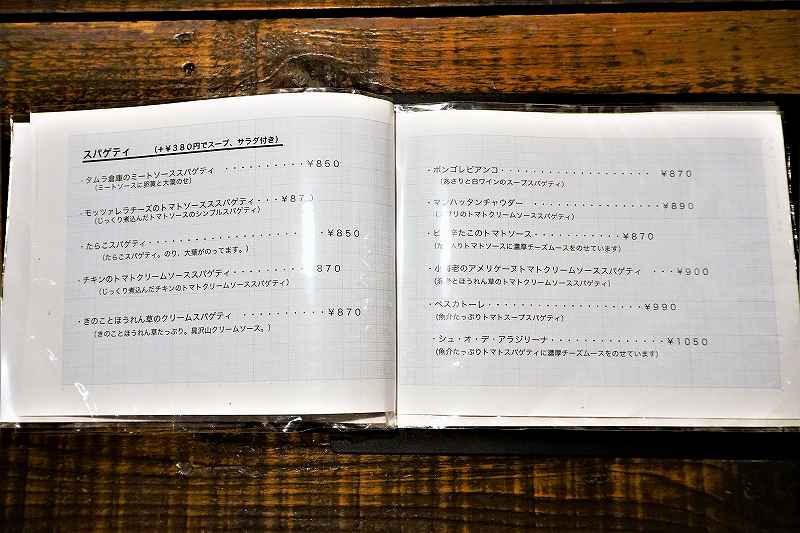 スパゲティ (+¥380円でスープ、サラダ付き)
・タムラ倉庫のミートソーススパゲティ ・・・・・・・・・・¥850
(ミートソースに卵黄と大葉のせ)
・モッツァレラチーズのトマトソーススパゲティ・・・¥870
(じっくり煮込んだトマトソースのシンプルスパゲティ)
・たらこスパゲティ・・・・・・・・・・・・・・・・・・・¥850
(たらこスパゲティ。のり、大葉がのってます。)
・チキンのトマトクリームソーススパゲティ・・・・・・・・870
(じっくり煮込んだチキンのトマトクリームソーススパゲティ)
・きのことほうれん草のクリームスパゲティ ・・・・・・・・・¥870
(きのことほうれん草たっぷり。具沢山クリームソース。)
・ボンゴレビアンコ・・・・・・・・・・・・・・・・・・ ¥870
(あさりと白ワインのスープスパゲティ)
・マンハッタンチャウダー ・・・・・・・・・・・・・・¥890
のトマトクリームソーススパゲティ)
・ たこのトマトソース ・・・・・・・・・¥870
入りトマトソースに濃厚チーズムースをのせています)
・小海老のアメリケーヌトマトクリームソーススパゲティ ・・・¥900
とほうれん草のトマトクリームソーススパゲティ)
・ペスカトーレ ・・・・・・・・・・・・・・・・・・・・¥990
(魚介たっぷりトマトスープスパゲティ)
・シュ・オ・デ・アラジリーナ・・・・・・・・・・・・・・¥1050
(魚介たっぷりトマトスパゲティに濃厚チーズムースをのせています)